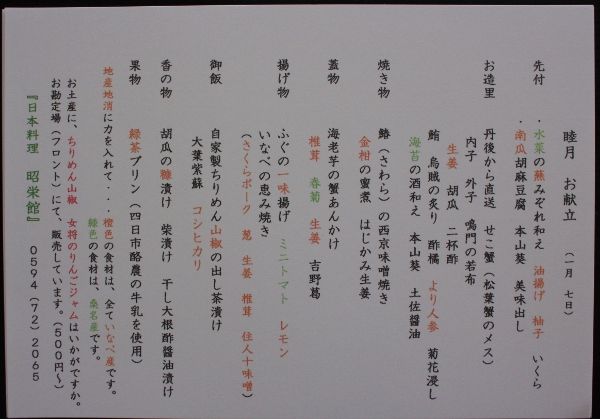 睦月 お献立 (一月 七日)
先付 ・水菜の蕪みぞれ和え 油揚げ 柚子 いくら
・南瓜胡麻豆腐 本山葵 美味出し
お造里 丹後から直送 せこ蟹(松葉蟹のメス)
内子 外子 鳴門の若布
生姜 胡瓜 二杯酢
鮪 烏賊の炙り 酢橘 より人参 菊花浸し
海苔の酒和え 本山葵 土佐醤油
焼き物 鰆(さわら)の西京味噌焼き
金柑の蜜煮 はじかみ生姜
蓋物 海老芋の蟹あんかけ
椎茸 春菊 生姜 吉野葛
揚げ物 ふぐの一味揚げ ミニトマト レモン
いなべの恵み焼き
(さくらポーク 葱 生姜 椎茸 住人十味噌)
御飯 自家製ちりめん山椒の出し茶漬け
大葉紫蘇 コシヒカリ
香の物 胡瓜の糠漬け 柴漬け 干し大根酢醤油漬け
果物 緑茶プリン(四日市酪農の牛乳を使用)
地産地消に力を入れて・・橙色の食材は、全ていなべ産です。
緑色の食材は、桑名産です。
お土産に、ちりめん山椒 女将のりんごジャムはいかがですか。
お勘定場(フロント)にて、販売しています。(500円~)
『日本料理 昭栄館』 0594(72)2065